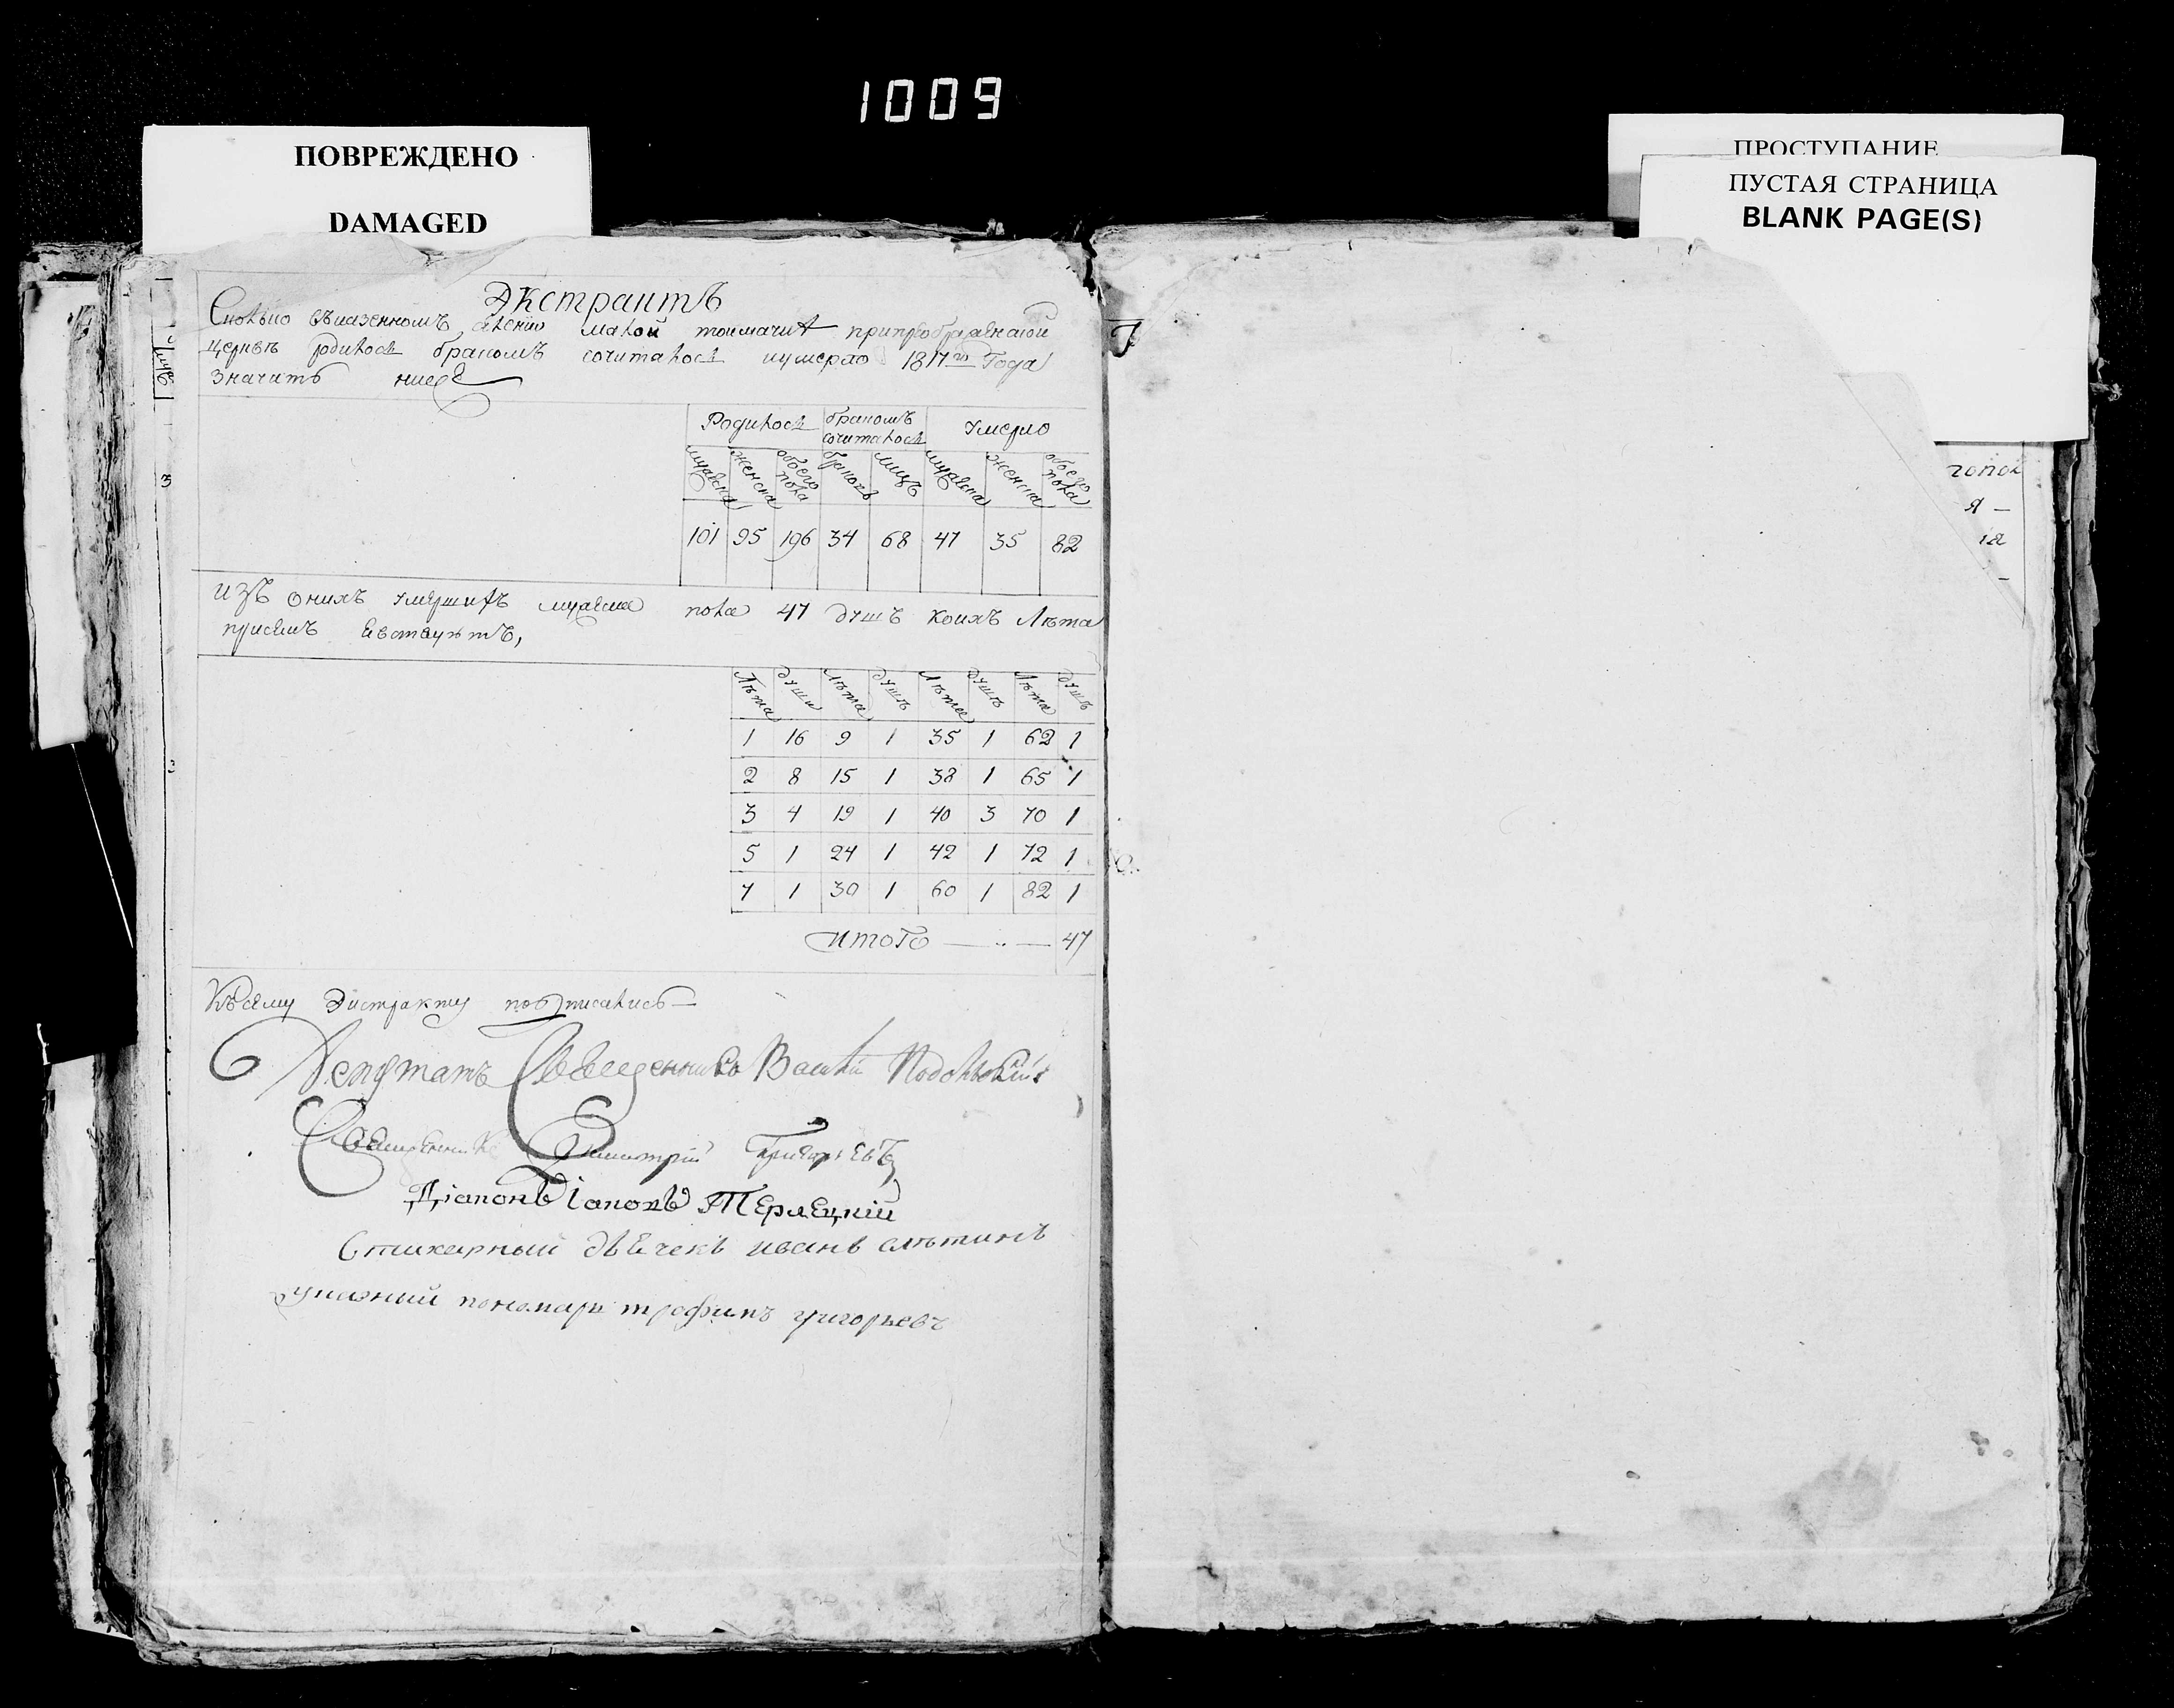 1009
ПОВРЕЖДЕНО
DAMAGED
ПРОСТУПАНИЕ
ПУСТАЯ СТРАНИЦА
BLANK PAGE(S)
Экстрактъ
Сколько въ казенномъ селении малой токмачкѣ при преображенской
церквѣ родилось бракомъ сочиталось и умерло 1817го Года
Значитъ ниже
Родилось бракомъ сочиталось Умерло
мужеска женска обоего пола браковъ лицъ мужеска женска обоего пола
101 95 196 34 68 47 35 82
изъ онихъ умершихъ мужеска пола 47 душъ коихъ Лѣта
при семъ
Лѣта души Лѣта душъ Лѣта душъ Лѣта душъ
1 16 9 1 35 1 62 1
2 8 15 1 38 1 65 1
3 4 19 1 40 3 70 1
5 1 24 1 42 1 72 1
7 1 30 1 60 1 82 1
итого 47
Къ сему Экстракту подписались
Депутатъ Священникъ Подольский
Священникъ Димитрій Григорьевъ
Діаконъ Іаковъ Терлецкій
Стихарный дьечекъ иванъ
указний пономарь трофимъ григорьевъ